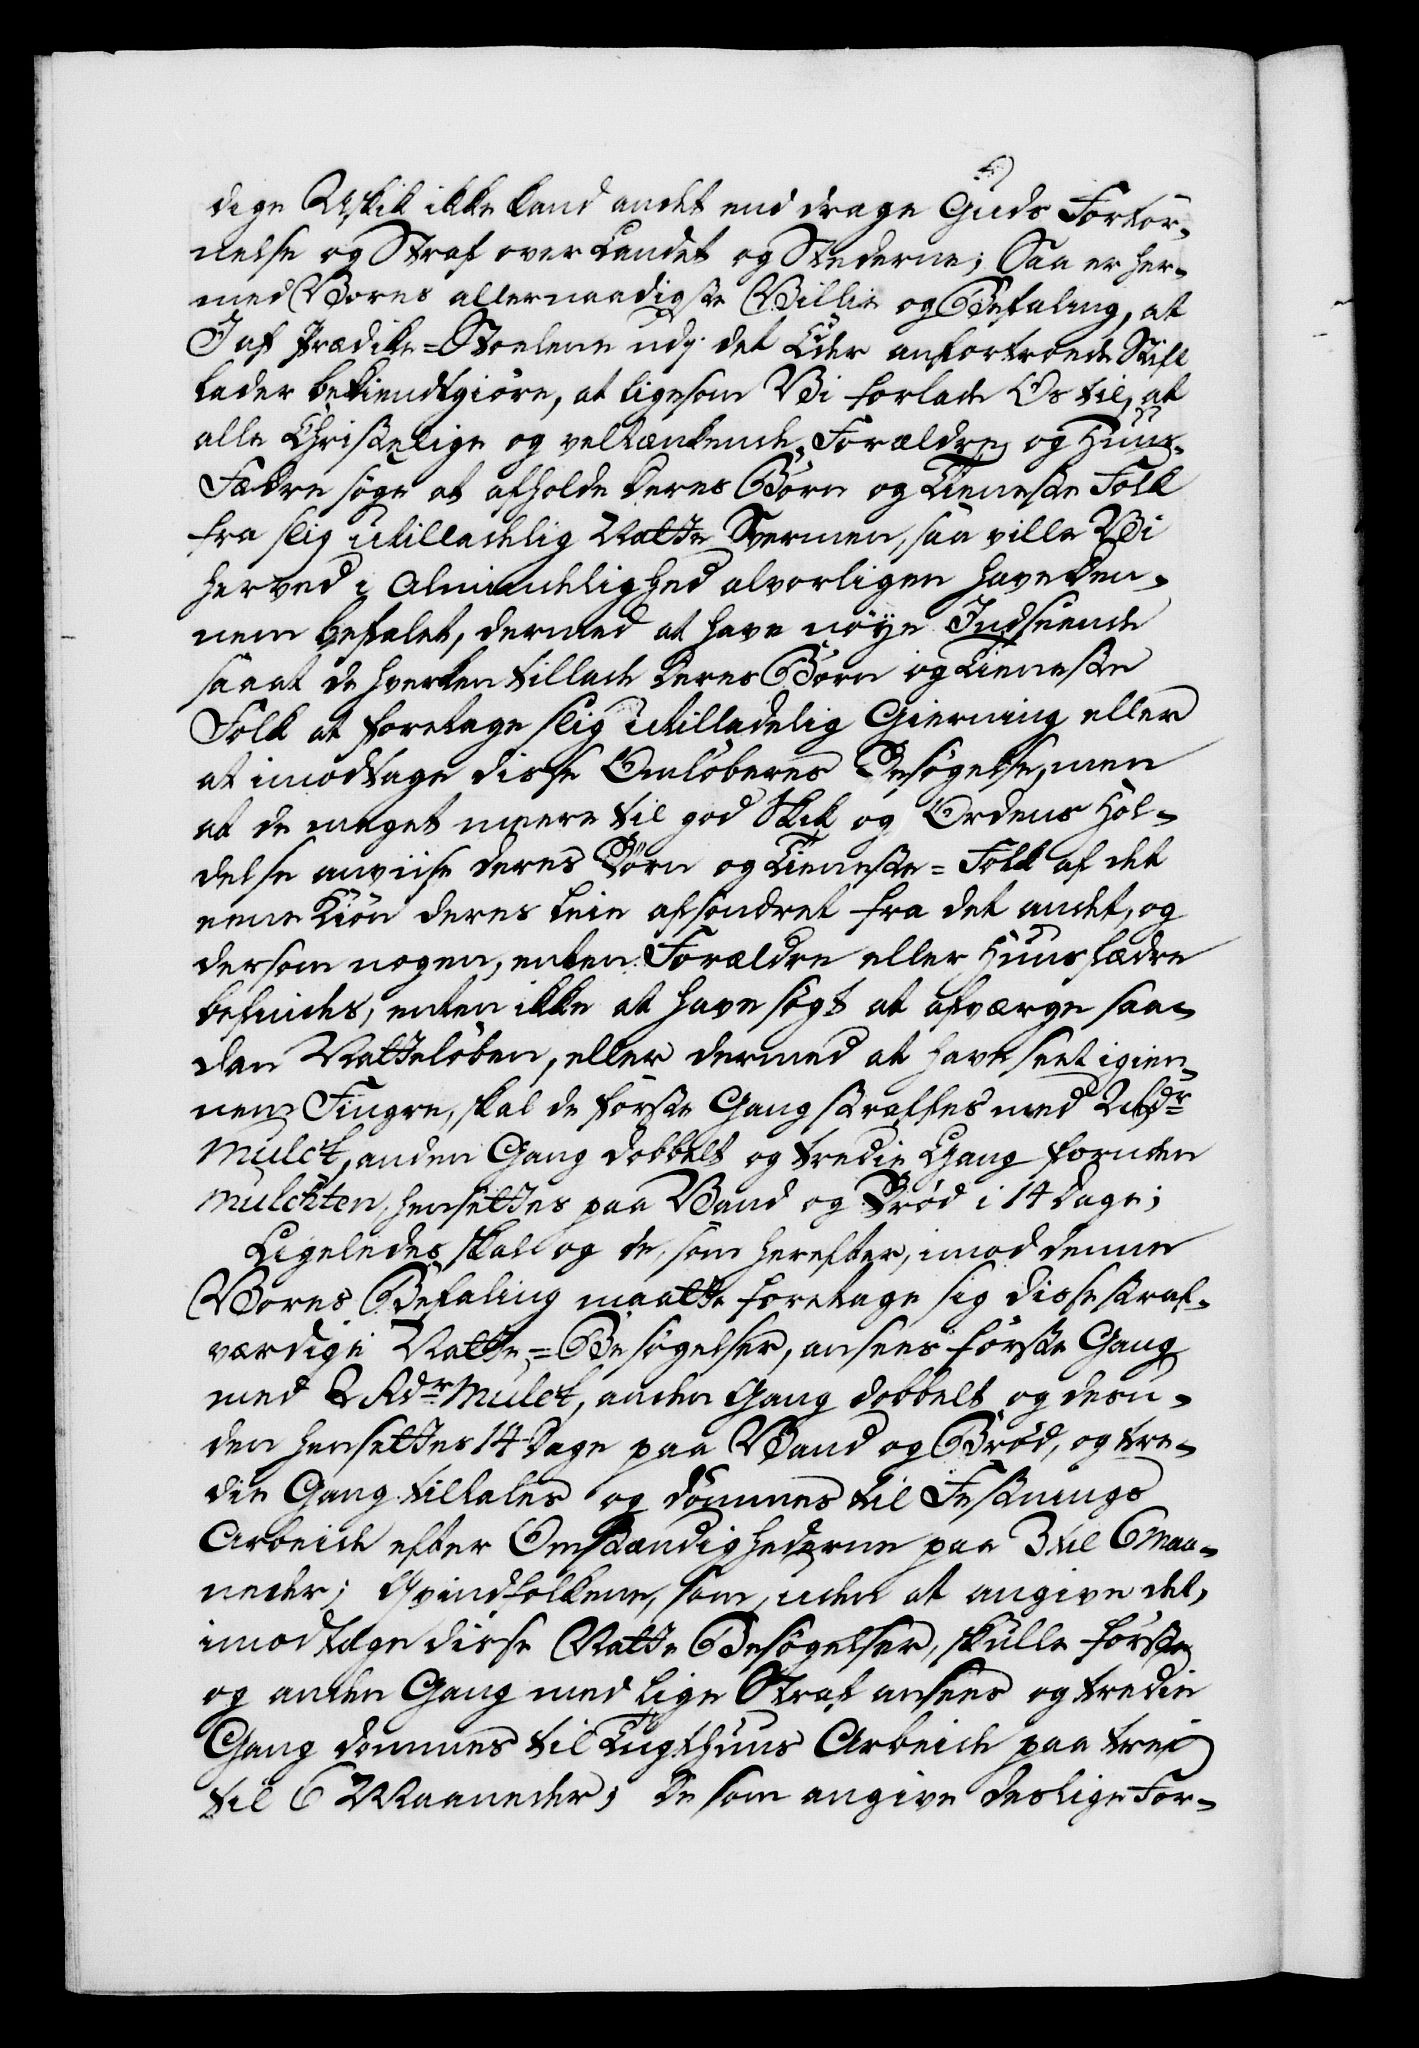 dige Uskik ikke kand andet end drage Guds Fortör-
nelse og Straf over Landet og Stederne; Saa er her-
med Vores allernaadigste Villie og Befaling, at
I af Prædike-Stoelene udj det Eder anfortroede Stift
lader bekiendtgiöre, at ligesom Vi forlade Os til, at
alle Christelige og veltænkende Forældre og Huus-
Fædre söge at afholde deres Börn og Tieneste Folk
fra slig utilladelig Natte Svermen, saa ville Vi
herved i Almindelighed alvorligen have den-
nem befalet, dermed at have nöye Indseende
saa at de hverken tillade deres Börn og Tieneste
Folk at foretage slig utilladelig Gierning eller
at imodtage disse Omlöberes Besögelse, men
at de meget meere til god Skik og Ordens Hol-
delse anviise deres Börn og Tieneste-Folk af det
eene Kiön deres Leie afsondret fra det andet, og
dersom nogen, enten Forældre eller Huusfædre
befindes, enten ikke at have sögt at afværge saa-
dan Natteløben, eller dermed at have seet igien-
nem Fingre, skal de förste Gang straffes med 2 Rdr
Mulct, anden Gang dobbelt og tredie Gang foruden
Mulckten, hensettes paa Vand og Brød i 14 Dage;
Ligeledes skal og de, som herefter, imod denne
Vores Befaling maatte foretage sig disse straf-
værdige Natte-Besögelser, ansees förste Gang
med 2 Rdr Mulct, anden Gang dobbelt og desu-
den hensettes 14 Dage paa Vand og Brød, og tre-
die Gang tiltales og dömmes til Festnings
Arbeide efter Omstændighederne paa 3 til 6 Maa-
neder; Qvindfolkene, som, uden at angive det,
imodtage disse Natte Besögelser, skulle förste
og anden Gang med lige Straf ansees og tredie
Gang dömmes til Tugthuus Arbeide paa trei
til 6 Maaneder; De som angive deslige For-